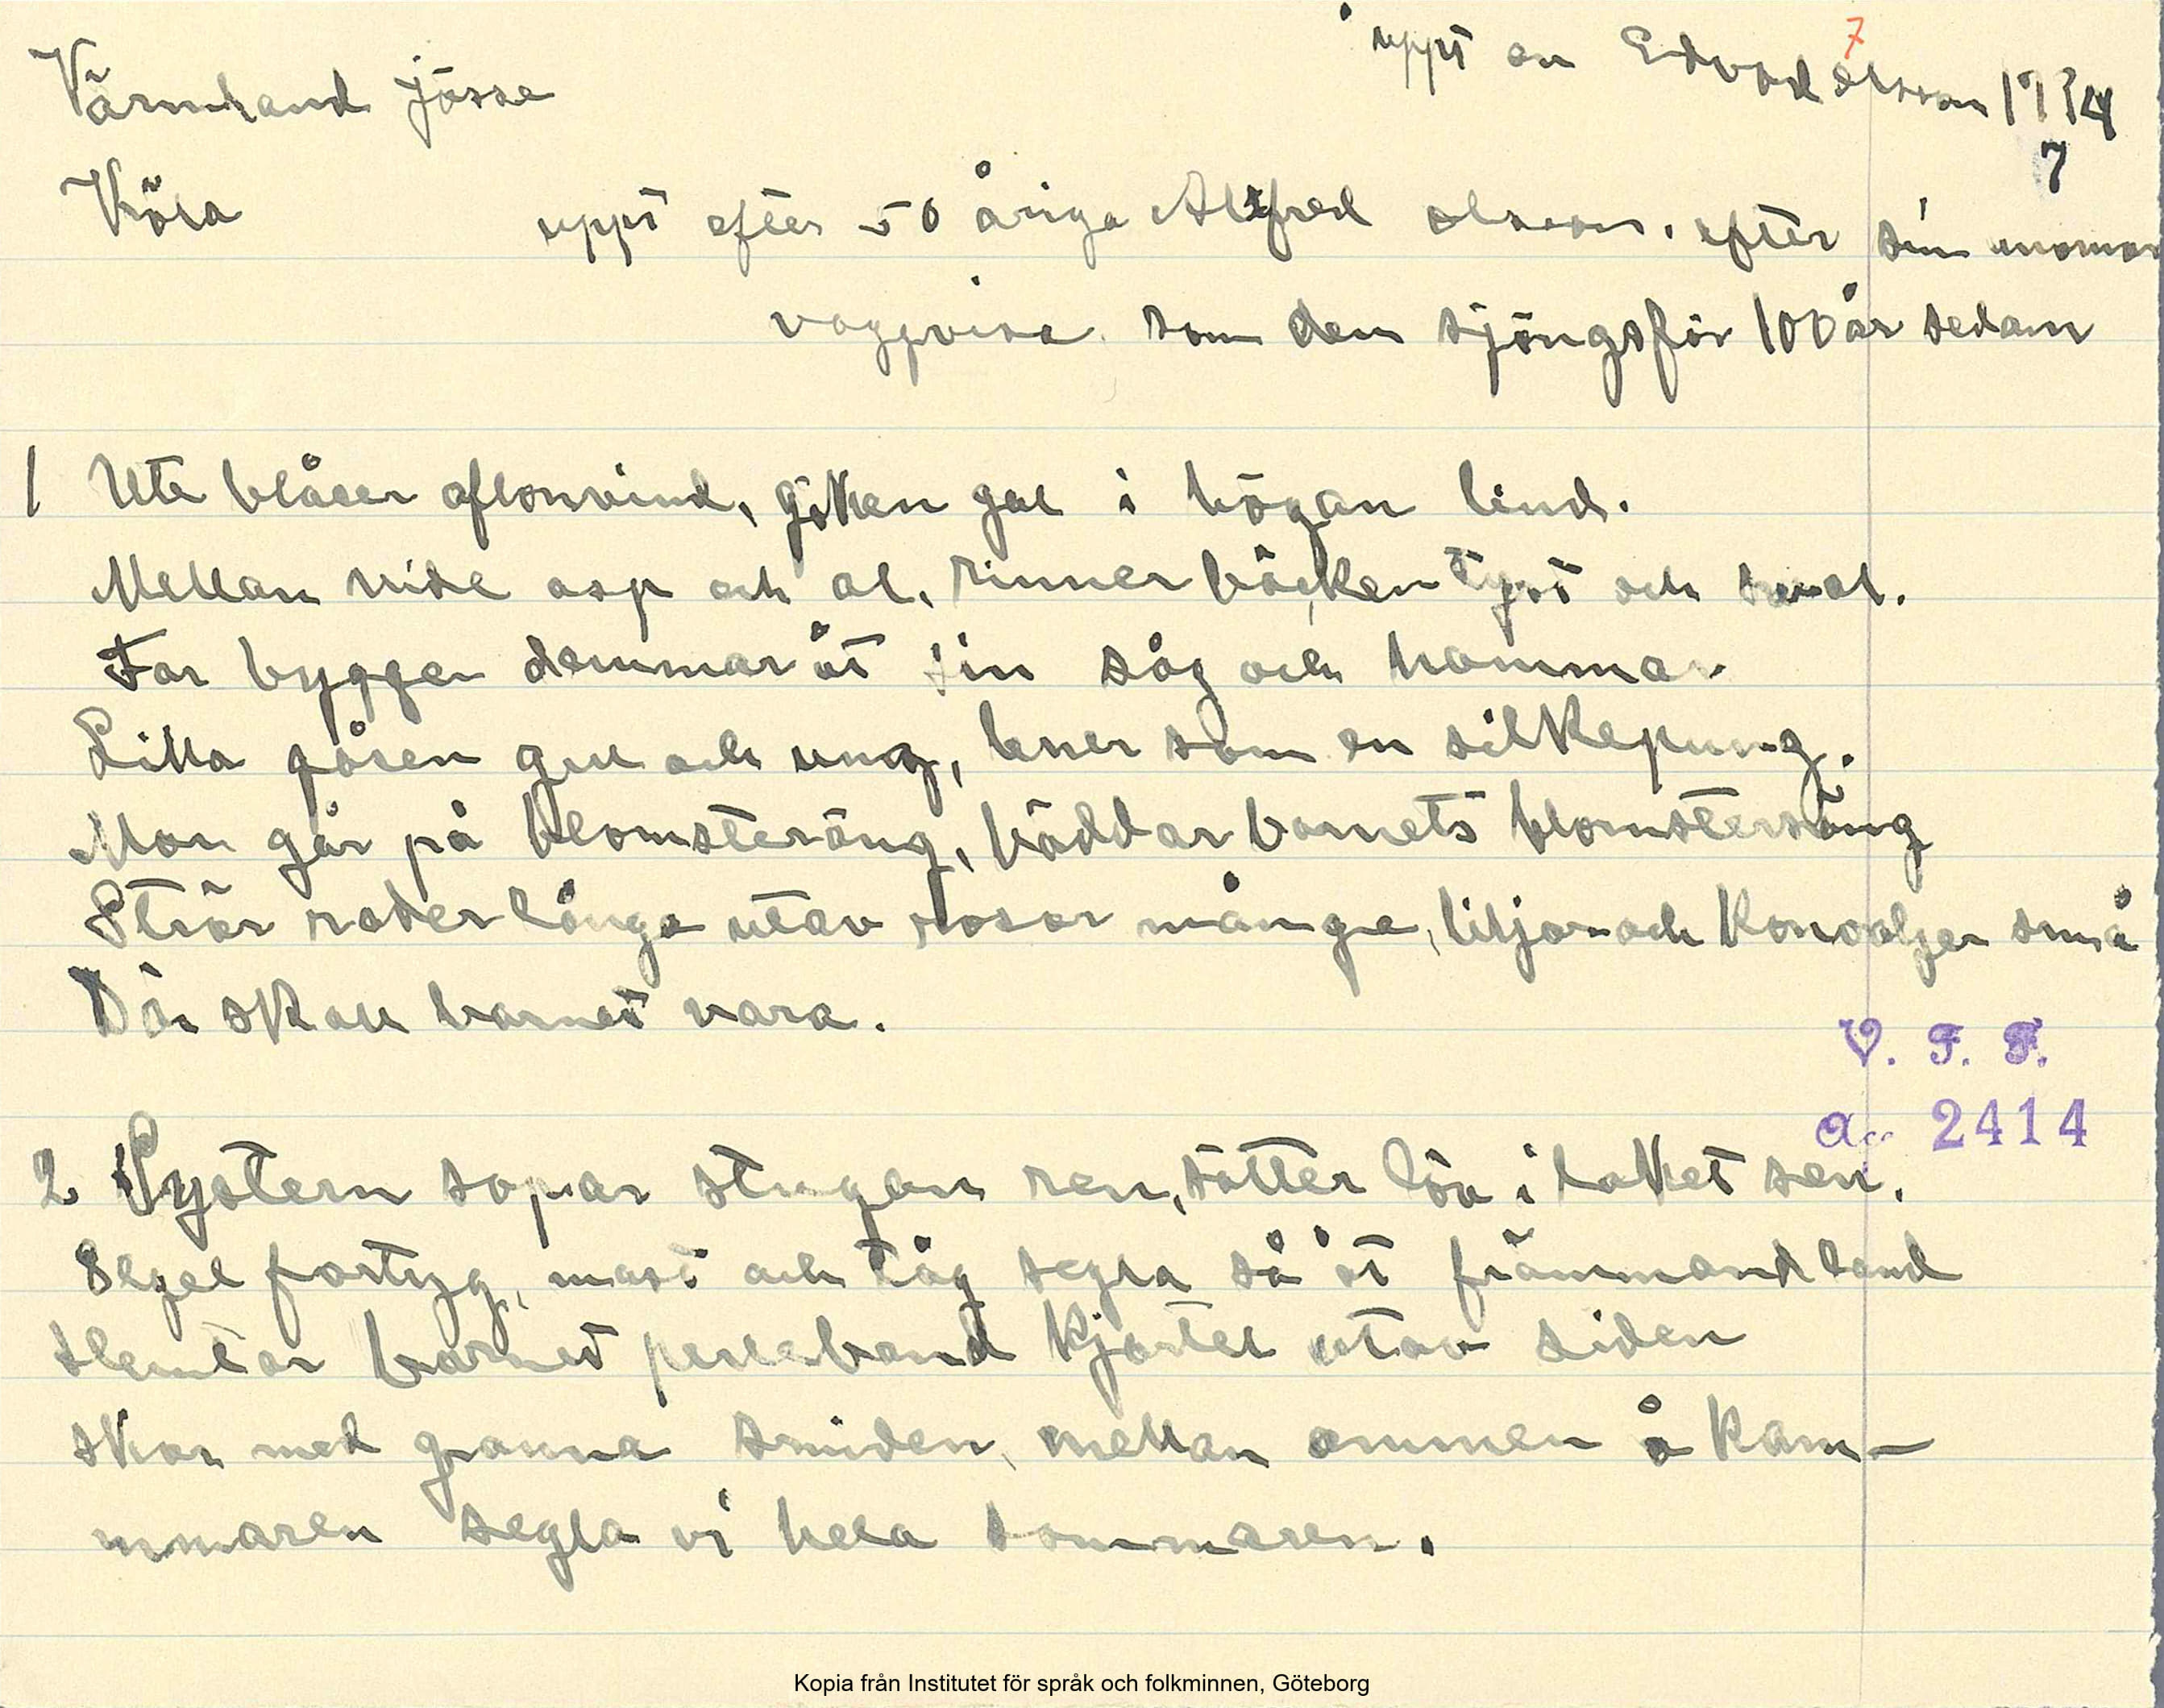 7
uppt av Edvard olsson 1934
Värmland Jösse
7
Köla
uppt efter 50 åriga Alfred olsson. efter sin momor
vaggvisa som den sjöngs för 100 år sedan
1 Ute blåser aftonvind, göken gal i högan lind.
Mellan vide asp och al, rinner bäcken tyst och sval.
Far bygger dammar åt sin såg och hammar
Lilla gåsen gul och ung, lener som en silkepung.
Mor går på blomsteräng, bäddar barnets blomstersäng
Strör rader långa utav rosor många, liljor och Konvaljer små
Där skall barnet vara.
V. F. F.
2414
2 Systern sopar stugan ren, sätter löv i taket sen.
Segel fartyg, mast och tåg segla så åt främmand land
Hemtar barnet perleband Kjortel utav siden
skor med granna smiden, mellan ammen å Kam-
mmaren segla vi hela sommaren.
Kopia från Institutet för språk och folkminnen, Göteborg